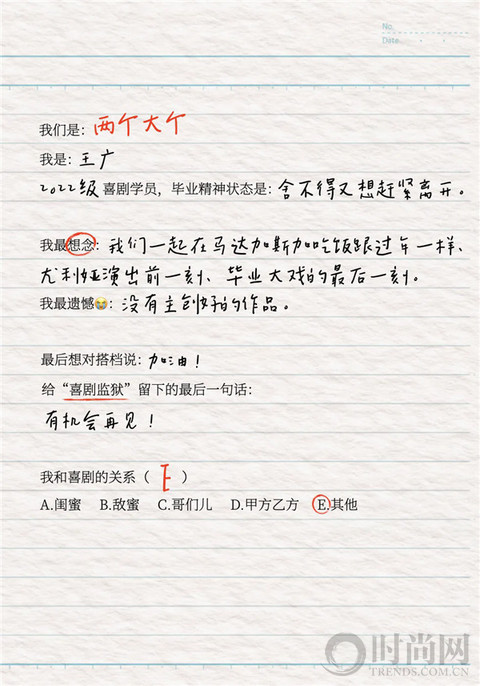 No.
Date.
我们是：两个大个
我是：王广
2022级喜剧学员，毕业精神状态是：舍不得又想赶紧离开。
我最想念：我们一起在马达加斯加吃饭跟过年一样、
尤利亚演出前一刻、毕业大戏的最后一刻。
我最遗憾😭：没有主创好的作品。
最后想对搭档说：加油！
给“喜剧监狱”留下的最后一句话：
有机会再见！
我和喜剧的关系（ E ）
A.闺蜜 B.敌蜜 C.哥们儿 D.甲方乙方 E.其他
时尚网
TRENDS.COM.CN